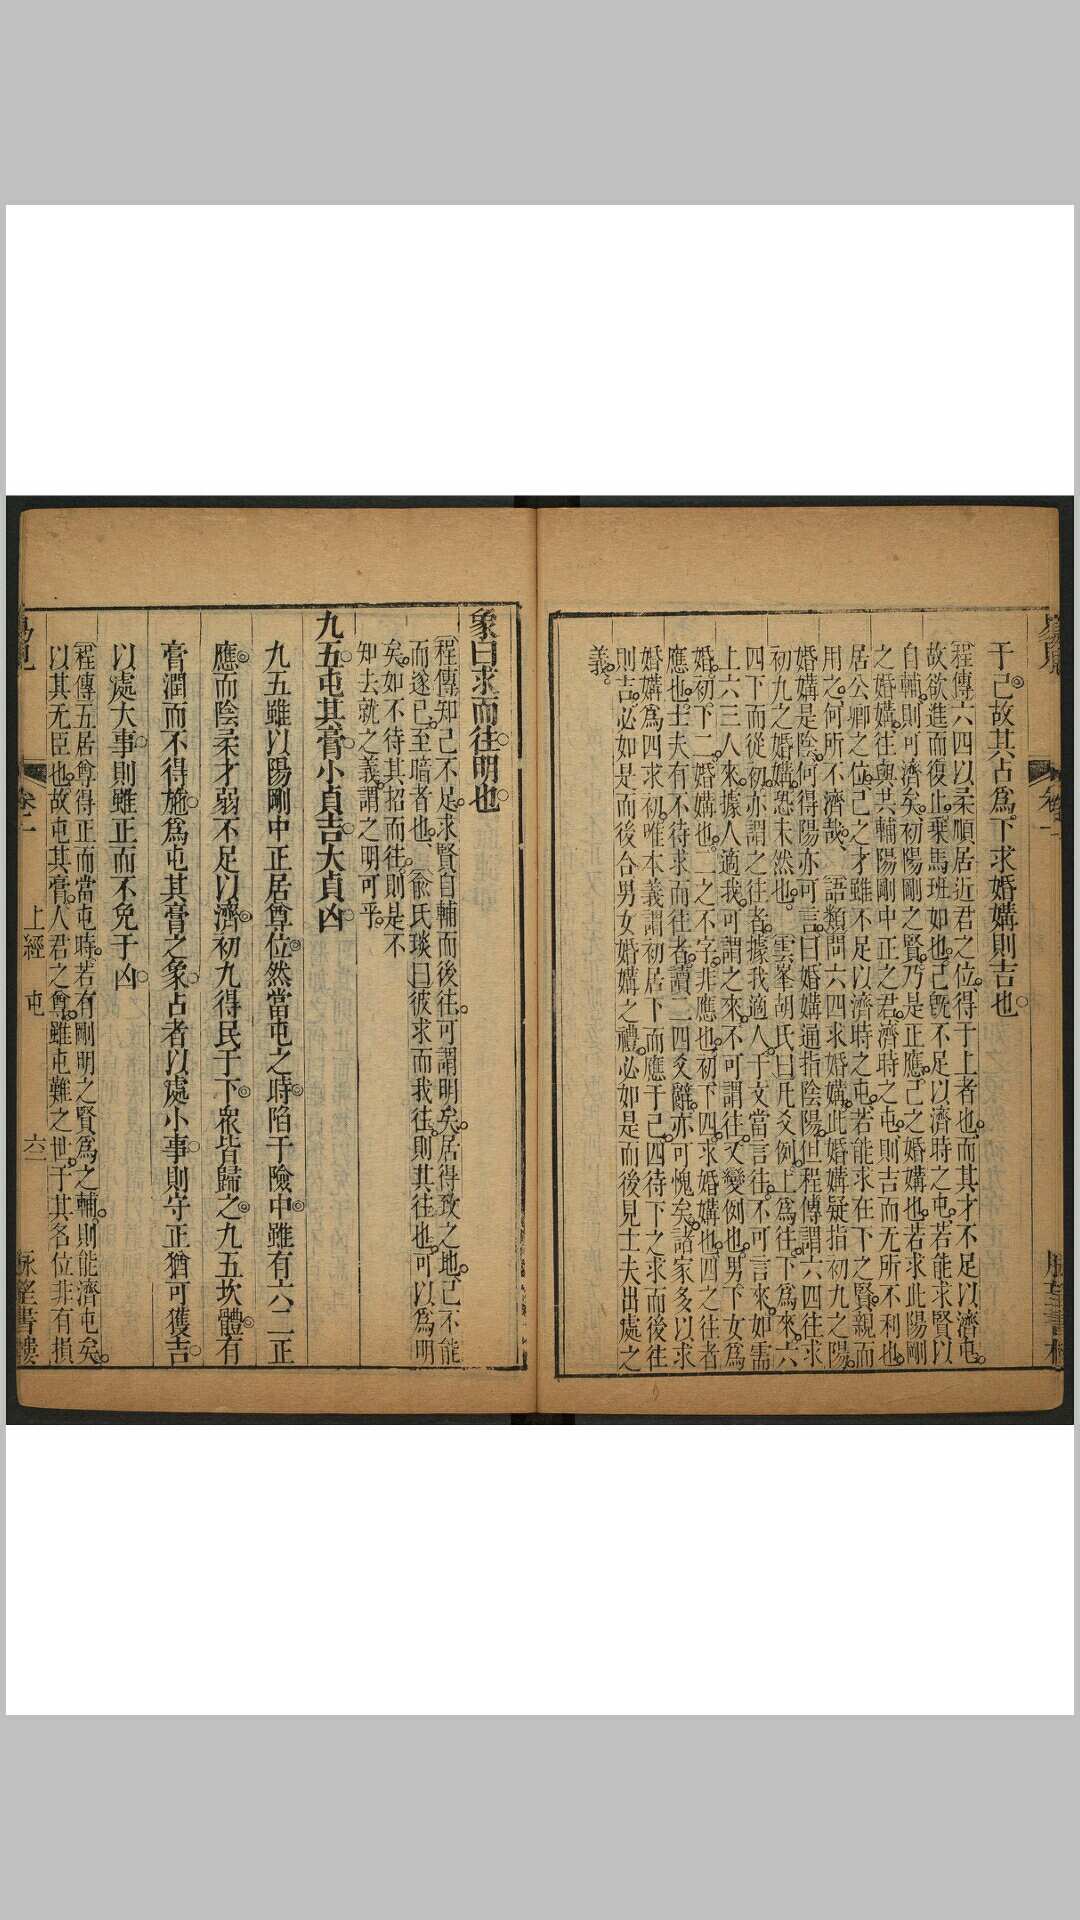 于己故其占為下求婚媾則吉也
程傳六四以柔順居近君之位得于上者也而其才不足以濟屯
故欲進而復止乗馬班如也己旣不足以濟時之屯若能求賢以
自輔則可濟矣初陽剛之賢乃是正應己之婚媾也若求此陽剛
之婚媾往與共輔陽剛中正之君濟時之屯則吉而无所不利也
居公卿之位己之才雖不足以濟時之屯若能求在下之賢親而
用之何所不濟哉 語類問六四求婚媾此婚媾疑指初九之陽
婚媾是陰何得陽亦可言曰婚媾通指陰陽但程傳謂六四往求
初九之婚媾恐未然也 雲峯胡氏曰凡爻例上為往下為來六
四下而從初亦謂之往者據我適人于文當言往不可言來如需
上六三人來據人適我可謂之來不可謂往又變例也男下女為
婚初下二婚媾也二之不字非應也初下四求婚媾也四之往者
應也士夫有不待求而往者讀二四爻辭亦可愧矣諸家多以求
婚媾為四求初唯本義謂初居下而應于己四待下之求而後往
則吉必如是而後合男女婚媾之禮必如是而後見士夫出處之
義
象曰求而往明也
程傳知己不足求賢自輔而後往可謂明矣居得致之地己不能
而遂已至暗者也 俞氏琰曰彼求而我往則其往也可以為明
矣如不待其招而往則是不
知去就之義謂之明可乎
九五屯其膏小貞吉大貞凶
九五雖以陽剛中正居尊位然當屯之時陷于險中雖有六二正
應而陰柔才弱不足以濟初九得民于下衆皆歸之九五坎體有
膏潤而不得施為屯其膏之象占者以處小事則守正猶可獲吉
以處大事則雖正而不免于凶
程傳五居尊得正而當屯時若有剛明之賢為之輔則能濟屯矣
以其无臣也故屯其膏人君之尊雖屯難之世于其名位非有損
卷一 上經 屯 六一 詠筦書樓